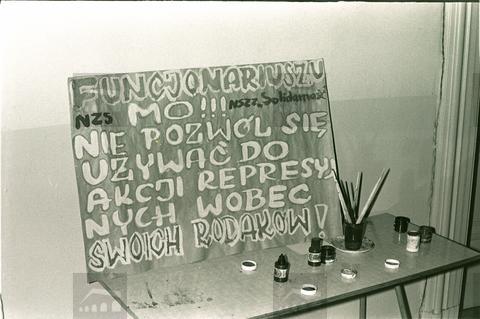 FUNCJONARIUSZU
NZS MO!!! NSZZ „Solidarność"
NIE POZWÓL SIĘ
UŻYWAĆ DO
AKCJI REPRESYJ
NYCH WOBEC
SWOICH RODAKÓW!